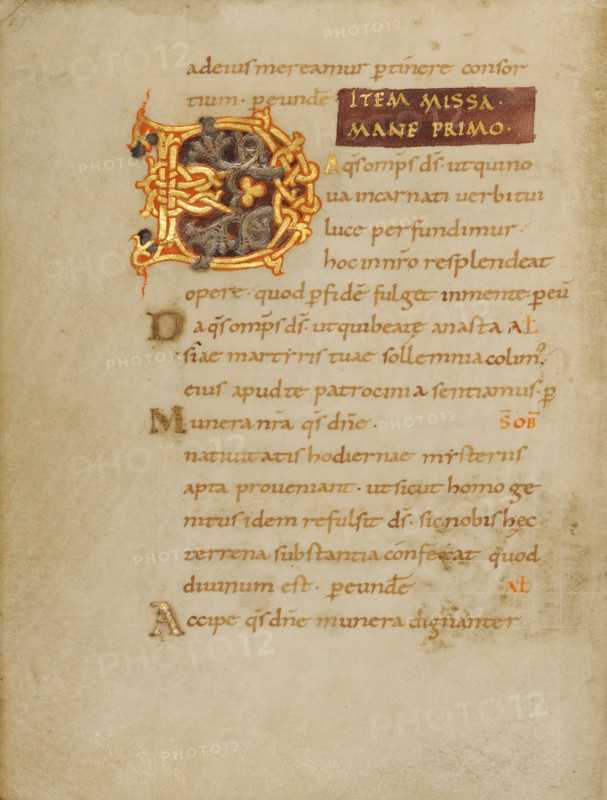 adeius mereamur ptinere consor
tium · p eundē
ITEM MISSA ·
MANE PRIMO ·
DA q̄s omp̄s d̄s · ut qui no
ua incarnati uerbi tui
luce perfundimur ·
hoc in nr̄o resplendeat
opere · quod p fidē fulget in mente · p eū
Da q̄s omp̄s d̄s · ut qui beatę anastasiae AL̄
siae martyris tuae sollemnia colim;
eius apud te patrocinia sentiamus · p
Munera nr̄a q̄s dn̄e · S̄ OB̄
natiuitatis hodiernae mysteriis
apta proueniant · ut sicut homo ge
nitus idem refulsit d̄s · sic nobis hęc
terrena substantia conferat quod
diuinum est · p eundē AL̄
Accipe q̄s dn̄e munera dignanter